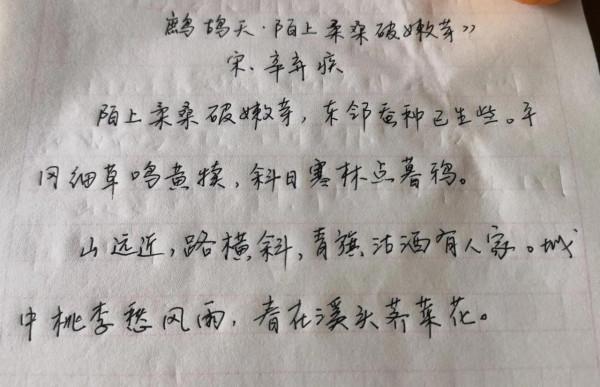 鹧鸪天·陌上柔桑破嫩芽》
宋.辛弃疾
陌上柔桑破嫩芽,东邻蚕种已生些。平
冈细草鸣黄犊,斜日寒林点暮鸦。
山远近,路横斜,青旗沽酒有人家。城
中桃李愁风雨,春在溪头荠菜花。